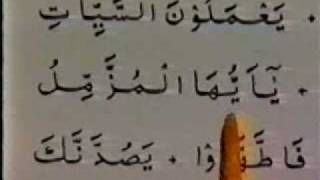 • يَعْمَلُوْنَ السَّيِّاٰتِ
• يٰۤاَيُّهَا الْمُزَّمِّلُ
فَاطَّهَّرُوْا • يَصُدَّنَّكَ